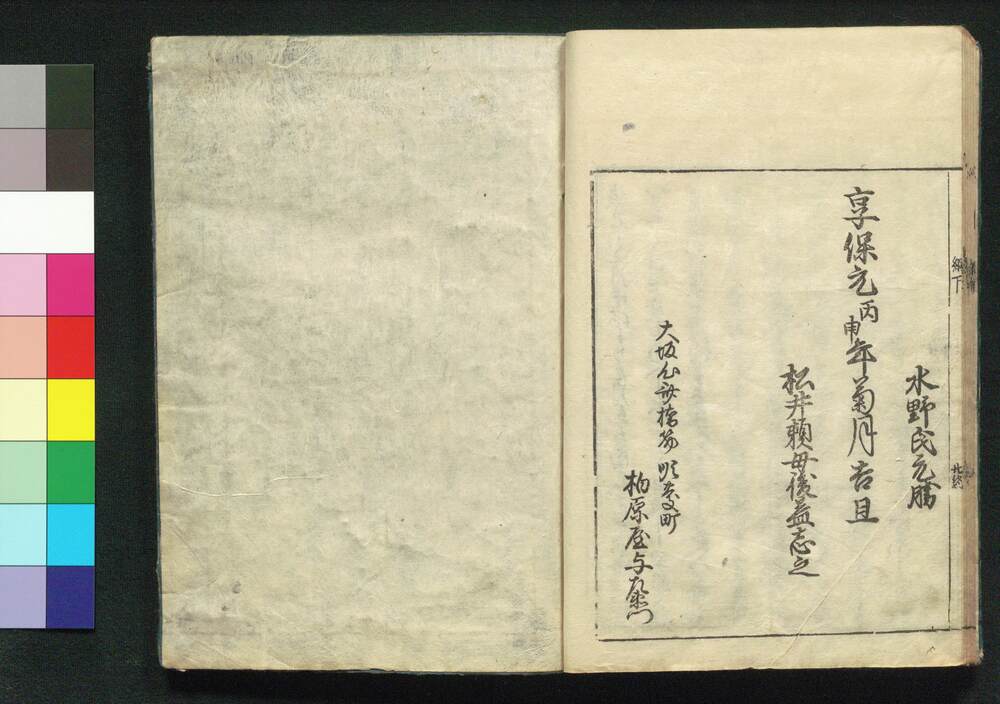 水野氏元勝
享保元丙申年菊月吉旦
松井頼母後益志之
大坂心斎橋筋順慶町
柏原屋与左衛門
綱下